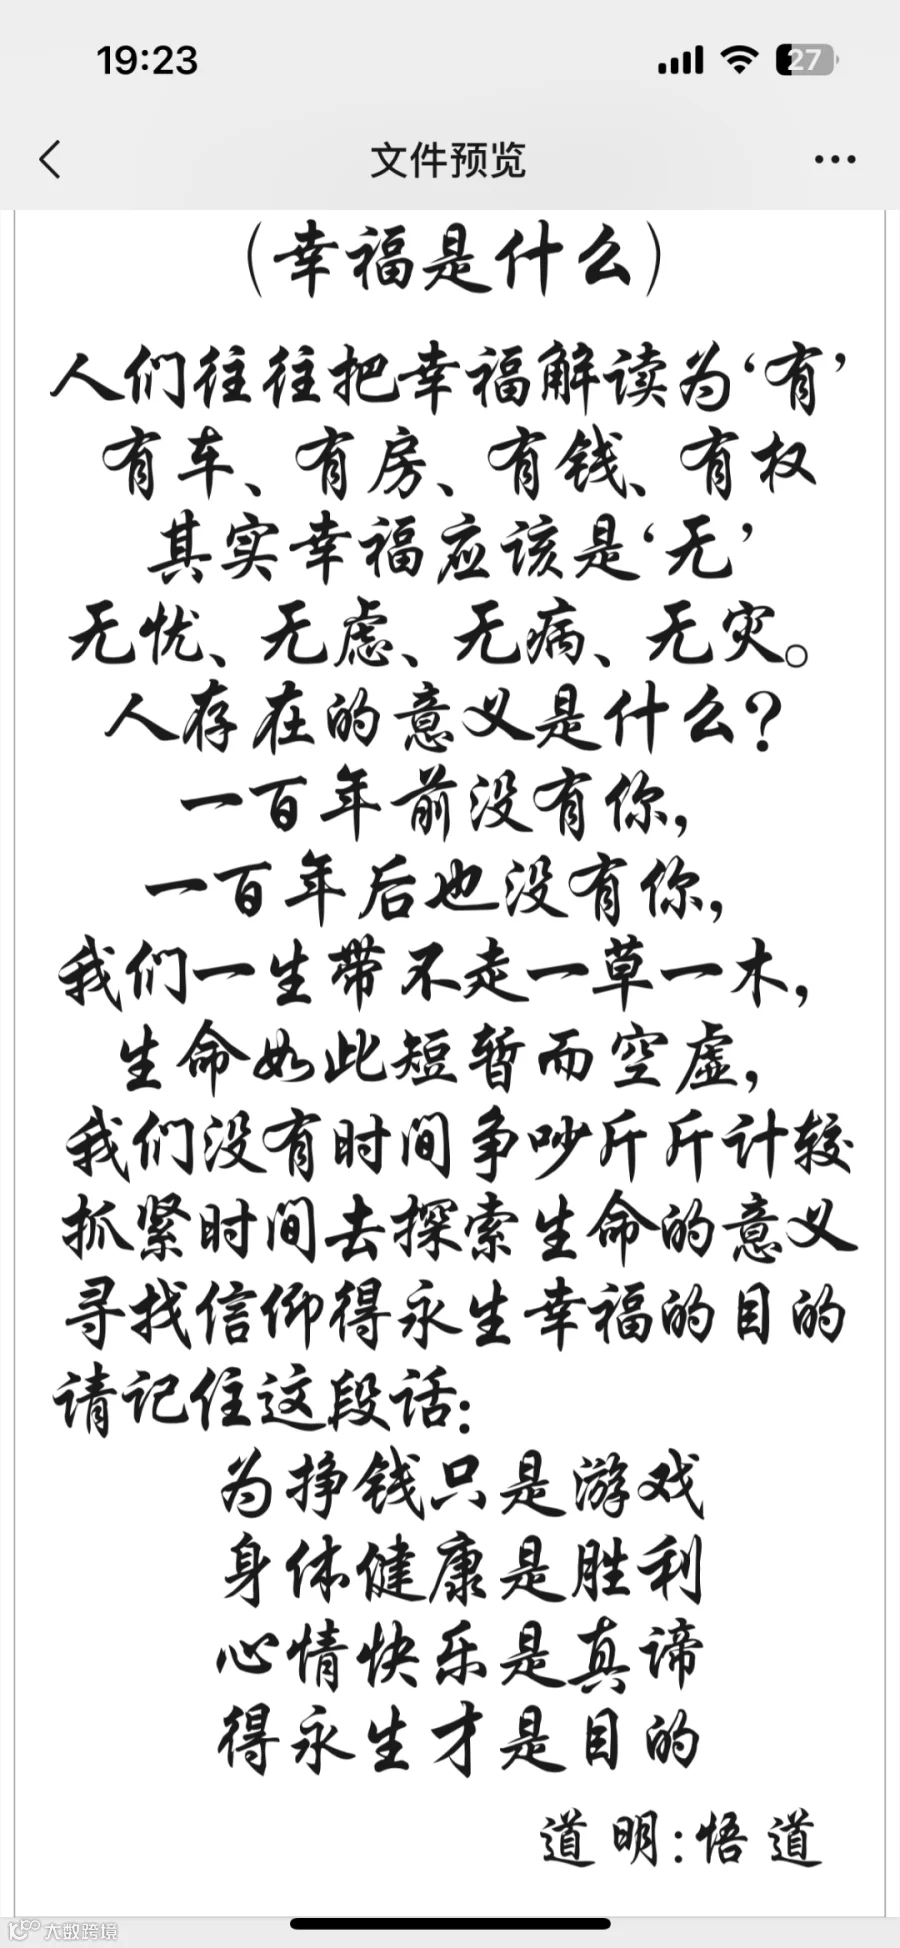 19:23
27
文件预览
（幸福是什么）
人们往往把幸福解读为‘有’
有车、有房、有钱、有权
其实幸福应该是‘无’
无忧、无虑、无病、无灾。
人存在的意义是什么？
一百年前没有你，
一百年后也没有你，
我们一生带不走一草一木，
生命如此短暂而空虚，
我们没有时间争吵斤斤计较
抓紧时间去探索生命的意义
寻找信仰得永生幸福的目的
请记住这段话：
为挣钱只是游戏
身体健康是胜利
心情快乐是真谛
得永生才是目的
道明：悟道
大数跨境